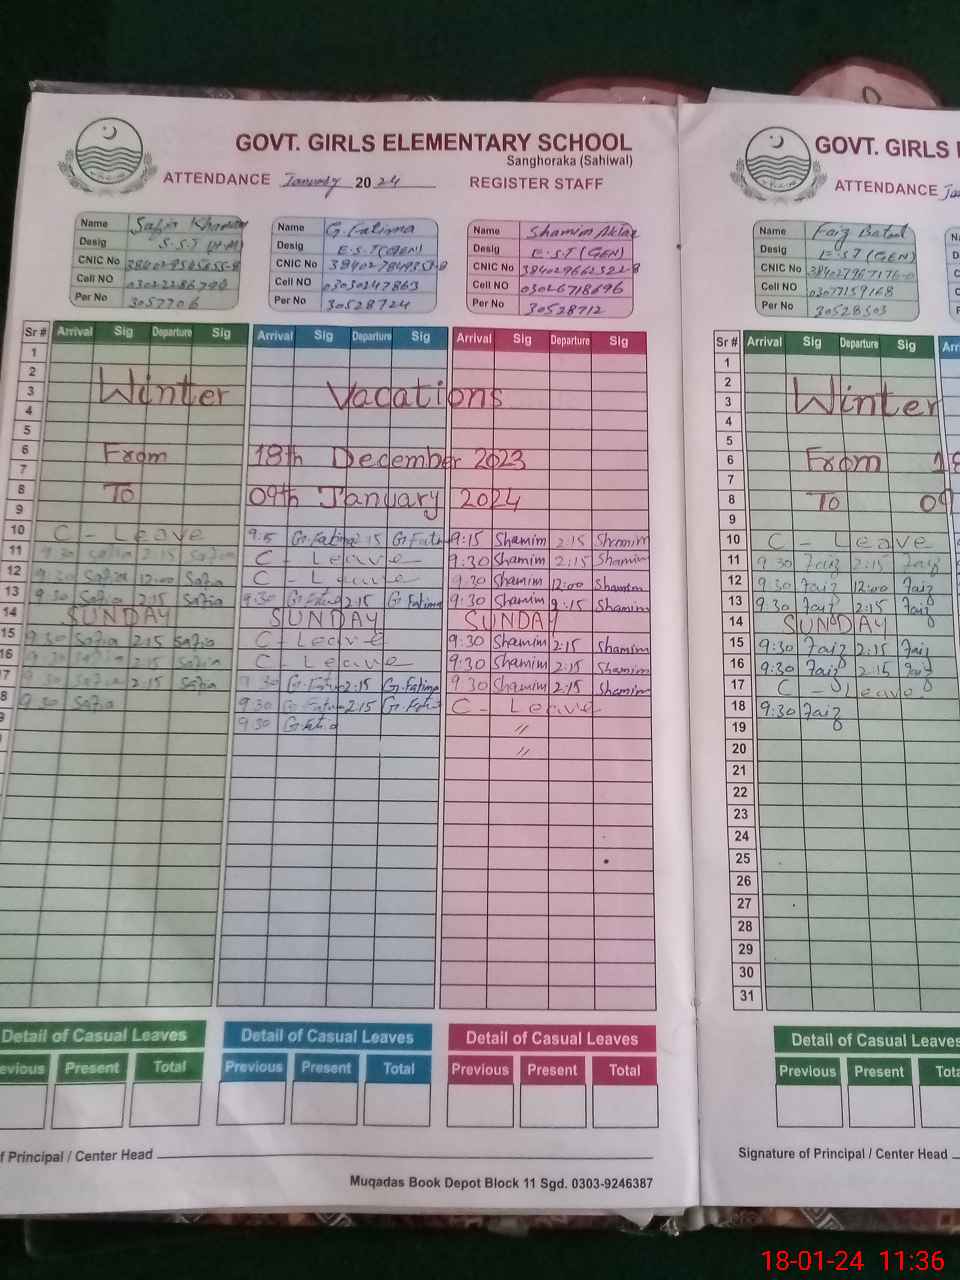 GOVT. GIRLS ELEMENTARY SCHOOL
Sanghoraka (Sahiwal)
ATTENDANCE January 20 24 REGISTER STAFF
Name Safia Name G. Fatima Name Shamim Akhtar
Desig S.S.T (H.M) Desig E.S.T (GEN) Desig E.S.T (GEN)
CNIC No CNIC No CNIC No
Cell NO Cell NO 03030247863 Cell NO 03026718696
Per No 3057706 Per No 30528724 Per No 30528712
Sr # Arrival Sig Departure Sig Arrival Sig Departure Sig Arrival Sig Departure Sig
1
2
3 Winter Vacations
4
5
6 From 18th December 2023
7
8 To 09th January 2024
9
10 C - Leave 9:5 G.Fatima 2:15 G.Fati 9:15 Shamim 2:15 Shamim
11 9:30 Safia 2:15 Safia C - Leave 9:30 Shamim 2:15 Shamim
12 9:30 Safia 12:00 Safia C - Leave 9:30 Shamim 12:00 Shamim
13 9:30 Safia 2:15 Safia 9:30 G.Fati 2:15 G Fatima 9:30 Shamim 2:15 Shamim
14 SUNDAY SUNDAY SUNDAY
15 9:30 Safia 2:15 Safia C - Leave 9:30 Shamim 2:15 Shamim
16 9:30 Safia 2:15 Safia C - Leave 9:30 Shamim 2:15 Shamim
7 9:30 Safia 2:15 Safia 9:30 G.Fati 2:15 G.Fatima 9:30 Shamim 2:15 Shamim
8 9:30 Safia 9:30 G.Fati 2:15 G.Fati C - Leave
9 9:30 G.Fati //
//
Detail of Casual Leaves Detail of Casual Leaves Detail of Casual Leaves
evious Present Total Previous Present Total Previous Present Total
f Principal / Center Head
Muqadas Book Depot Block 11 Sgd. 0303-9246387
GOVT. GIRLS
ATTENDANCE Ja
Name Faiz Batool
Desig E.S.T (GEN)
CNIC No 384027967176-0
Cell NO 03077159168
Per No 30528503
Sr # Arrival Sig Departure Sig Arr
1
2
3 Winter
4
5
6 From 18
7
8 To 09
9
10 C - Leave
11 9:30 Faiz 2:15 Faiz
12 9:30 Faiz 12:00 Faiz
13 9:30 Faiz 2:15 Faiz
14 SUNDAY
15 9:30 Faiz 2:15 Faiz
16 9:30 Faiz 2:15 Faiz
17 C - Leave
18 9:30 Faiz
19
20
21
22
23
24
25
26
27
28
29
30
31
Detail of Casual Leaves
Previous Present Tota
Signature of Principal / Center Head
18-01-24 11:36